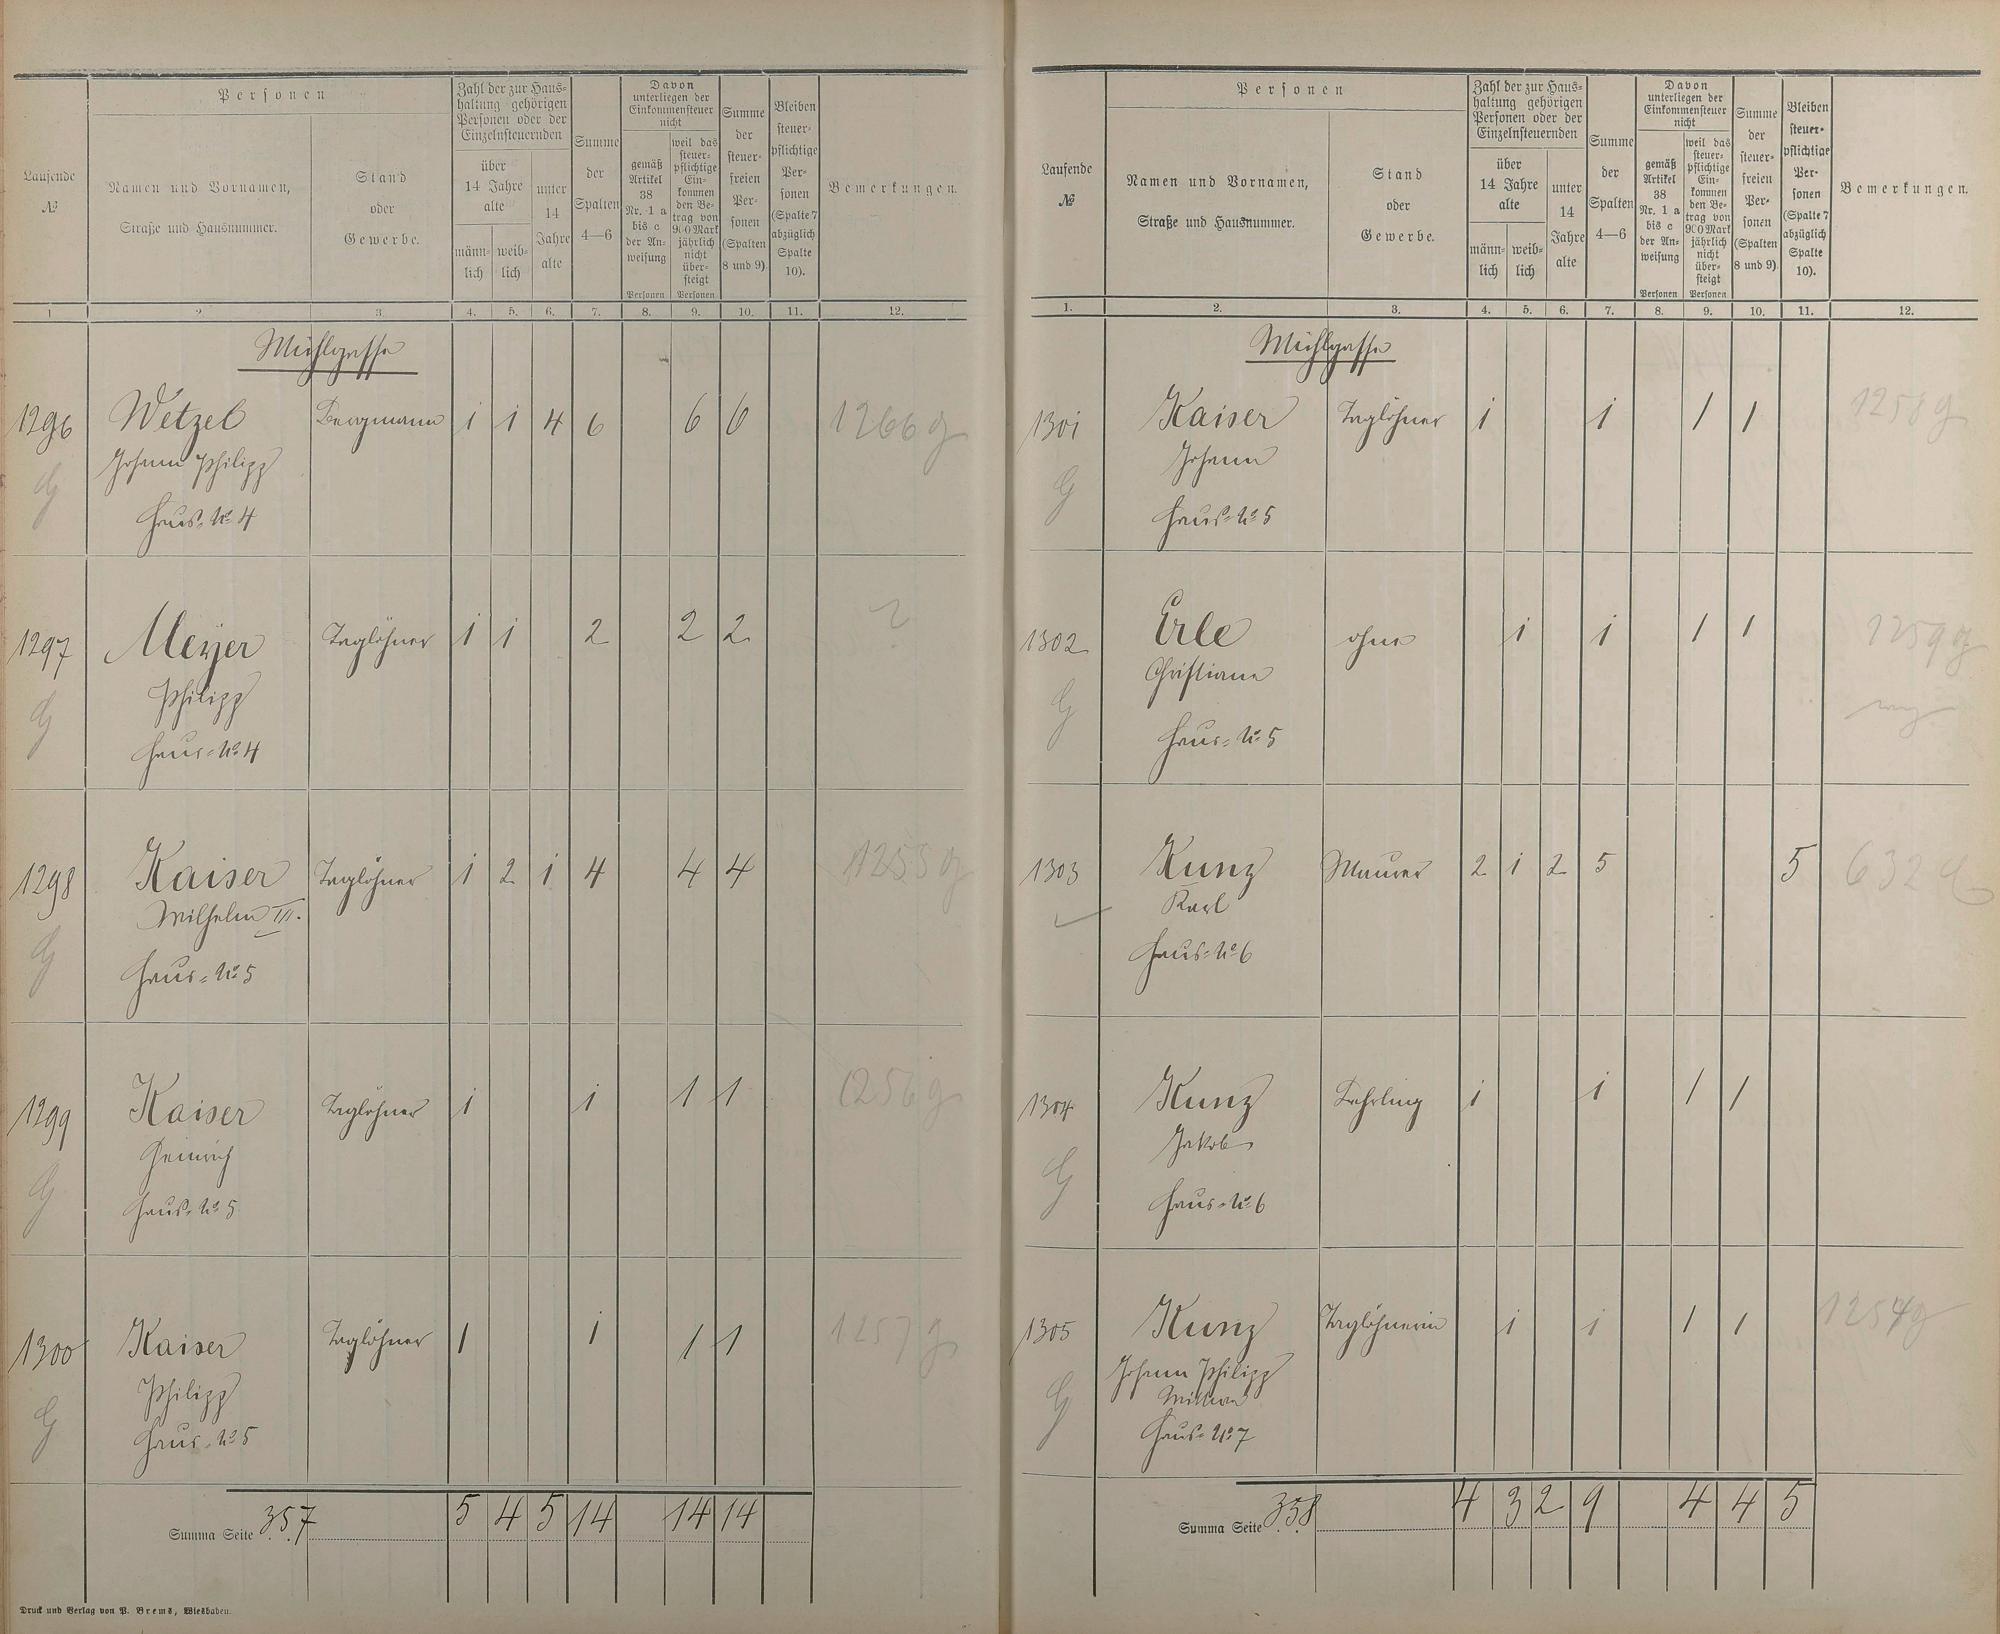 Laufende
№
Personen
Namen und Vornamen,
Straße und Hausnummer.
Stand
oder
Gewerbe.
Zahl der zur Haus=
haltung gehörigen
Personen oder der
Einzelnsteuernden
über
14 Jahre
alte
männ=
lich
weib=
lich
unter
14
Jahre
alte
Summe
der
Spalten
4—6
Davon
unterliegen der
Einkommensteuer
nicht
gemäß
Artikel
38
Nr. 1 a
bis c
der An=
weisung
Personen
weil das
steuer=
pflichtige
Ein=
kommen
den Be=
trag von
900 Mark
jährlich
nicht
über=
steigt
Personen
Summe
der
steuer=
freien
Per=
sonen
(Spalten
8 und 9)
Bleiben
steuer=
pflichtige
Per=
sonen
(Spalte 7
abzüglich
Spalte
10).
Bemerkungen.
1 2 3. 4. 5. 6. 7. 8. 9. 10. 11. 12.
Mühlgasse
1296 Wetzel Bergmann 1 1 4 6 6 6 1266 g
Johann Philipp
G
Haus=No 4
1297 Meyer Taglöhner 1 1 2 2 2 ?
Philipp
G
Haus=No 4
1298 Kaiser Taglöhner 1 2 1 4 4 4 1255 g
Wilhelm III.
G
Haus=No 5
1299 Kaiser Taglöhner 1 1 1 1 1256 g
Heinrich
G
Haus=No 5
1300 Kaiser Taglöhner 1 1 1 1 1257 g
Philipp
G
Haus=No 5
Summa Seite 357 5 4 5 14 14 14
Druck und Verlag von P. Brems, Wiesbaden.
Laufende
№
Personen
Namen und Vornamen,
Straße und Hausnummer.
Stand
oder
Gewerbe.
Zahl der zur Haus=
haltung gehörigen
Personen oder der
Einzelnsteuernden
über
14 Jahre
alte
männ=
lich
weib=
lich
unter
14
Jahre
alte
Summe
der
Spalten
4—6
Davon
unterliegen der
Einkommensteuer
nicht
gemäß
Artikel
38
Nr. 1 a
bis c
der An=
weisung
Personen
weil das
steuer=
pflichtige
Ein=
kommen
den Be=
trag von
900 Mark
jährlich
nicht
über=
steigt
Personen
Summe
der
steuer=
freien
Per=
sonen
(Spalten
8 und 9)
Bleiben
steuer=
pflichtige
Per=
sonen
(Spalte 7
abzüglich
Spalte
10).
Bemerkungen.
1. 2. 3. 4. 5. 6. 7. 8. 9. 10. 11. 12.
Mühlgasse
1301 Kaiser Taglöhner 1 1 1 1 1258 g
Johann
G
Haus=No 5
1302 Erle ohne 1 1 1 1 1259 g
Christiane
G
Haus=No 5
1303 Kunz Maurer 2 1 2 5 5 632
Karl
Haus=No 6
1304 Kunz Lehrling 1 1 1 1
Jakob
G
Haus=No 6
1305 Kunz Taglöhnerin 1 1 1 1 1254 g
Johann Philipp
Wittwe
G
Haus=No 7
Summa Seite 358 4 3 2 9 4 4 5